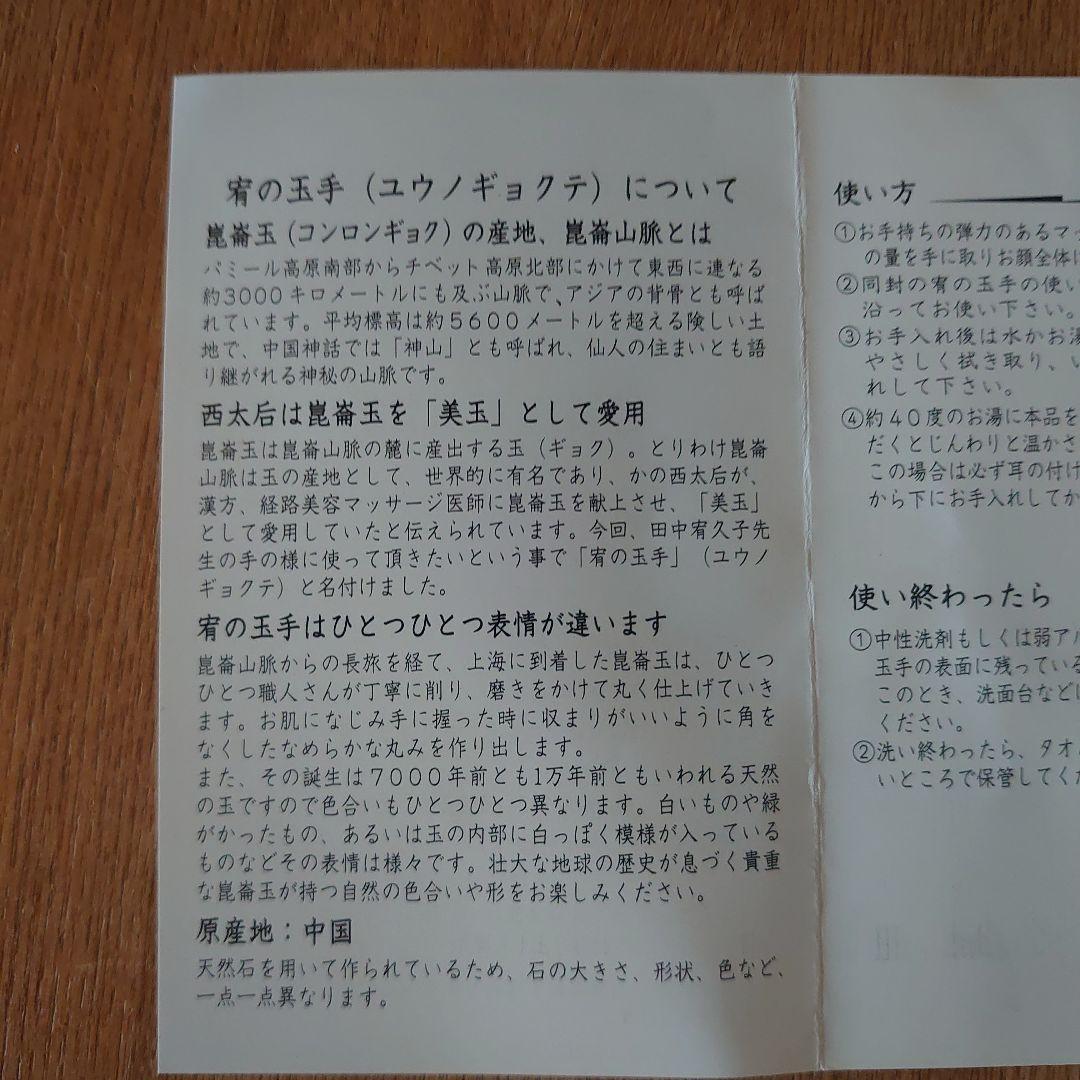 宥の玉手（ユウノギョクテ）について
崑崙玉（コンロンギョク）の産地、崑崙山脈とは
パミール高原南部からチベット高原北部にかけて東西に連なる
約3000キロメートルにも及ぶ山脈で、アジアの背骨とも呼ば
れています。平均標高は約5600メートルを超える険しい土
地で、中国神話では「神山」とも呼ばれ、仙人の住まいとも語
り継がれる神秘の山脈です。
西太后は崑崙玉を「美玉」として愛用
崑崙玉は崑崙山脈の麓に産出する玉（ギョク）。とりわけ崑崙
山脈は玉の産地として、世界的に有名であり、かの西太后が、
漢方、経路美容マッサージ医師に崑崙玉を献上させ、「美玉」
として愛用していたと伝えられています。今回、田中宥久子先
生の手の様に使って頂きたいという事で「宥の玉手」（ユウノ
ギョクテ）と名付けました。
宥の玉手はひとつひとつ表情が違います
崑崙山脈からの長旅を経て、上海に到着した崑崙玉は、ひとつ
ひとつ職人さんが丁寧に削り、磨きをかけて丸く仕上げていき
ます。お肌になじみ手に握った時に収まりがいいように角を
なくしたなめらかな丸みを作り出します。
また、その誕生は7000年前とも1万年前ともいわれる天然
の玉ですので色合いもひとつひとつ異なります。白いものや緑
がかったもの、あるいは玉の内部に白っぽく模様が入っている
ものなどその表情は様々です。壮大な地球の歴史が息づく貴重
な崑崙玉が持つ自然の色合いや形をお楽しみください。
原産地：中国
天然石を用いて作られているため、石の大きさ、形状、色など、
一点一点異なります。
使い方
①お手持ちの弾力のあるマッ
の量を手に取りお顔全体に
②同封の宥の玉手の使い
沿ってお使い下さい。
③お手入れ後は水かお湯
やさしく拭き取り、い
れして下さい。
④約40度のお湯に本品を
だくとじんわりと温かさ
この場合は必ず耳の付け
から下にお手入れしてか
使い終わったら
①中性洗剤もしくは弱アル
玉手の表面に残っている
このとき、洗面台などに
ください。
②洗い終わったら、タオル
いところで保管してくだ